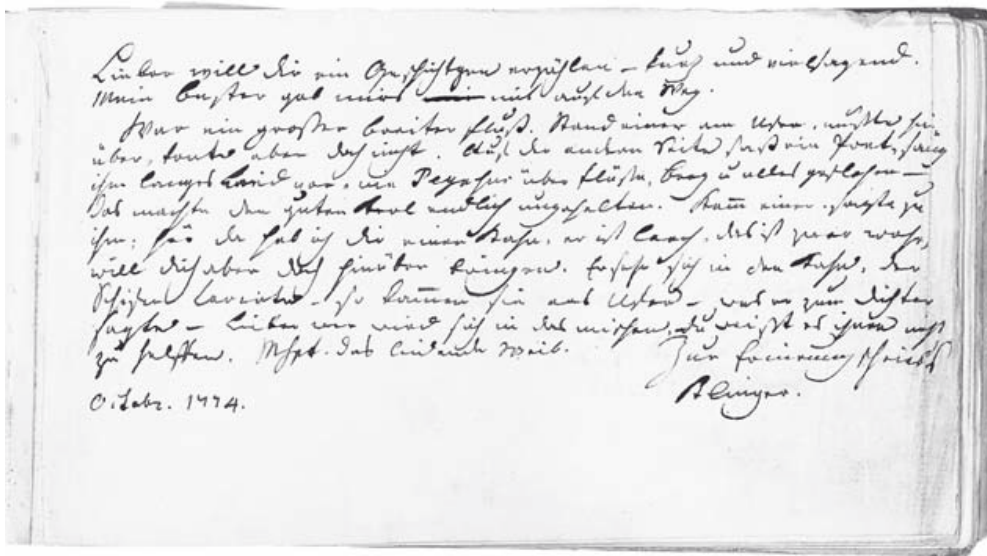 Lieber will dir ein Geschichtgen erzählen – kurz und vielsagend.
Mein bester gab mirs mit auf den Weg.
War ein groser breiter Fluß. Stand einer am Ufer, mußte hin
über, konte aber doch nicht. Auf der andern Seite saß ein Poet, sang
ihm langes Leid vor, wie Pegasus über Flüße, Berg u alles geflohen –
Das machte den guten Kerl endlich ungehalten. Kam einer, sagte zu
ihm; hör da hab ich dir einen Kahn, er ist leech, das ist zwar wahr,
will dich aber doch hinüber bringen. Er sezt sich in den Kahn, der
Schiffer lavirte – so kamen sie ans Ufer – was er zum Dichter
sagte – Lieber wer wird sich in das mischen, du weißt es ihnen nicht
zu helffen. Mspt. das leidende Weib.
Zur Erinnerung schriebs
8br. 1774.
Klinger.